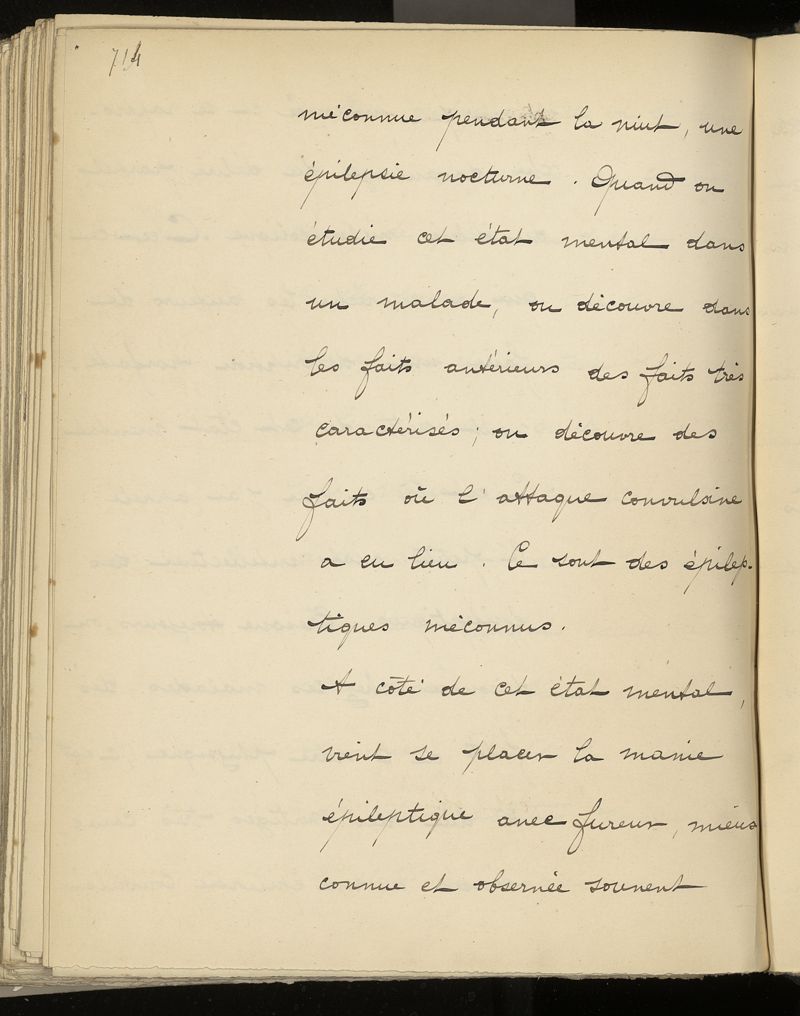 714
méconnue pendant la niut, une
épilepsie nocturne. Quand on
étudie cet état mental dans
un malade, on découvre dans
les faits antérieurs des faits très
caractérisés; on découvre des
faits où l'attaque convulsive
a eu lieu. Ce sont des épilep-
tiques méconnus.
A côté de cet état mental,
vient se placer la manie
épileptique avec fureur, mieux
connue et observée souvent